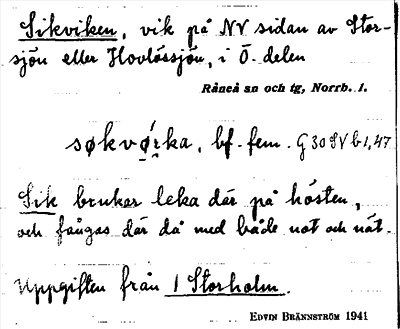 Sikviken, vik på NV sidan av Stor-
sjön eller Hovlössjön, i Ö. delen
Råneå sn och tg, Norrb. l.
bf. fem. G 30 SV b 1, 47
Sik brukar leka där på hösten,
och fångas där då med både not och nät.
Uppgiften från 1 Storholm.
EDVIN BRÄNNSTRÖM 1941